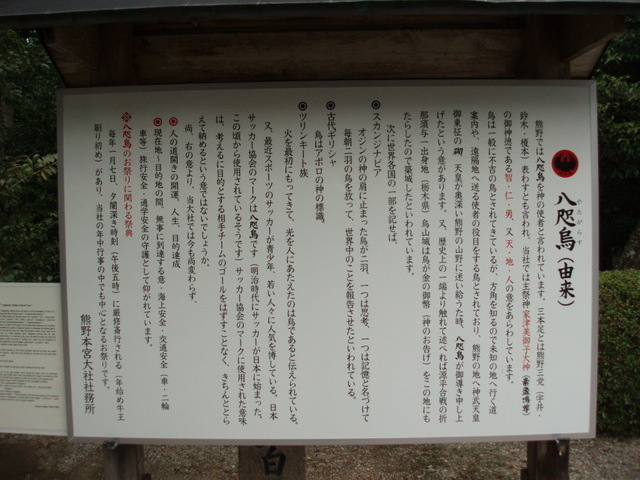 八咫烏（由来）
やたがらす
熊野では八咫烏を神の使者と言われています。三本足とは熊野三党（宇井・
鈴木・榎本）表わすとも言われ、当社では主祭神家津美御子大神（素盞鳴尊）
の御神徳である智・仁・勇、又天・地・人の意をあらわしています。
烏は一般に不吉の鳥とされてきているが、方角を知るので未知の地へ行く道
案内や、遠隔地へ送る使者の役目をする鳥とされており、熊野の地へ神武天皇
御東征の砌、天皇が奥深い熊野の山野に迷い給うた時、八咫烏が御導き申し上
げたという意があります。又、歴史上の一端より触れて述べれば源平合戦の折
那須与一出身地（栃木県）烏山城は烏が金の御幣（神のお告げ）をこの地にも
たらしたので築城したといわれています。
次に世界各国の一部を記せば、
◎スカンジナビア
オシンの神の肩に止まった烏が二羽、一つは思考、一つは記憶と名づけて
毎朝二羽の烏を放って、世界中のことを報告させたといわれている。
◎古代ギリシャ
烏はアポロの神の標識。
◎ツリンキート族
火を最初にもってきて、光を人にあたえたのは烏であると伝えられている。
又、最近スポーツのサッカーが青少年、若い人々に人気を博している。日本
サッカー協会のマークは八咫烏です（明治時代にサッカーが日本に始まった。
この頃から使用されているそうです）サッカー協会のマークに使用された意味
は、考えるに目的とする相手チームのゴールをはずすことなく、きちんととら
えて納めるという意ではないでしょうか。
尚、右の意より、当大社では今も尚変わらず、
◎人の道開きの開運、人生、目的達成
◎現在地～目的地の間、無事に到達する意・海上安全・交通安全（車・二輪
車等）旅行安全・通学安全の守護として仰がれています。
※八咫烏のお祭りに関わる祭典
毎年一月七日、夕闇深き時刻（午後五時）に厳修斎行される（年始め牛王
刷り初め）があり、当社の年中行事の中でも中心となるお祭りです。
熊野本宮大社社務所
白